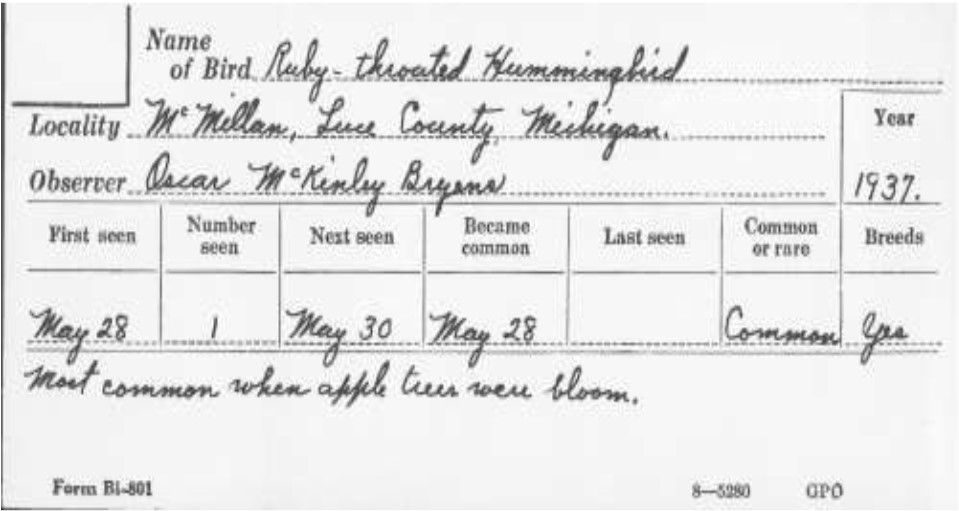 Name
of Bird Ruby-throated Hummingbird
Locality McMillan, Luce County, Michigan.
Year
Observer Oscar McKinley Bryens
1937.
First seen Number seen Next seen Became common Last seen Common or rare Breeds
May 28 1 May 30 May 28 Common Yes
Most common when apple trees were bloom.
Form Bi-801 8—5280 GPO